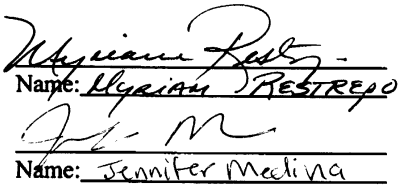 Myriam Rest
Name: MYRIAM RESTREPO
Name: Jennifer Medina